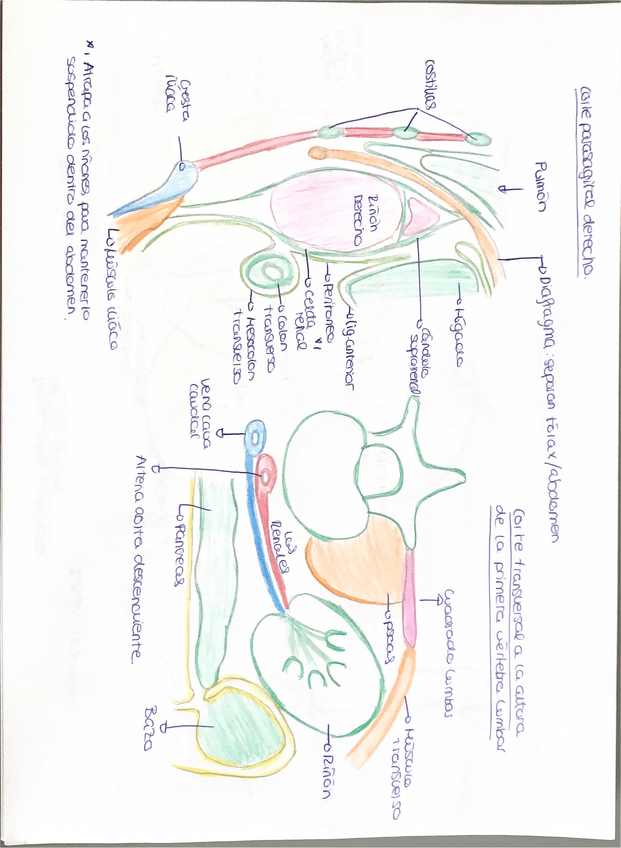 Corte parasagital derecho.
Pulmón
Diafragma: separan tórax/abdomen
costillas
Hígado
Cándula
suprarrenal
Riñón
Derecho
lig. anterior
Peritoneo
Celda *1
renal
Colon
transverso
Mesocolon
transverso
Cresta
ilíaca
Músculo ilíaco
*1 Atrapa a los riñones para mantenerlo
sospendido dentro del abdomen.
Corte transversal a la altura
de la primera vértebra lumbar
Cuadrado lumbar
psoas
Músculo
transverso
Riñón
Renales
vena cava
caudal
Arteria aorta descendente.
Pancreas
Bazo